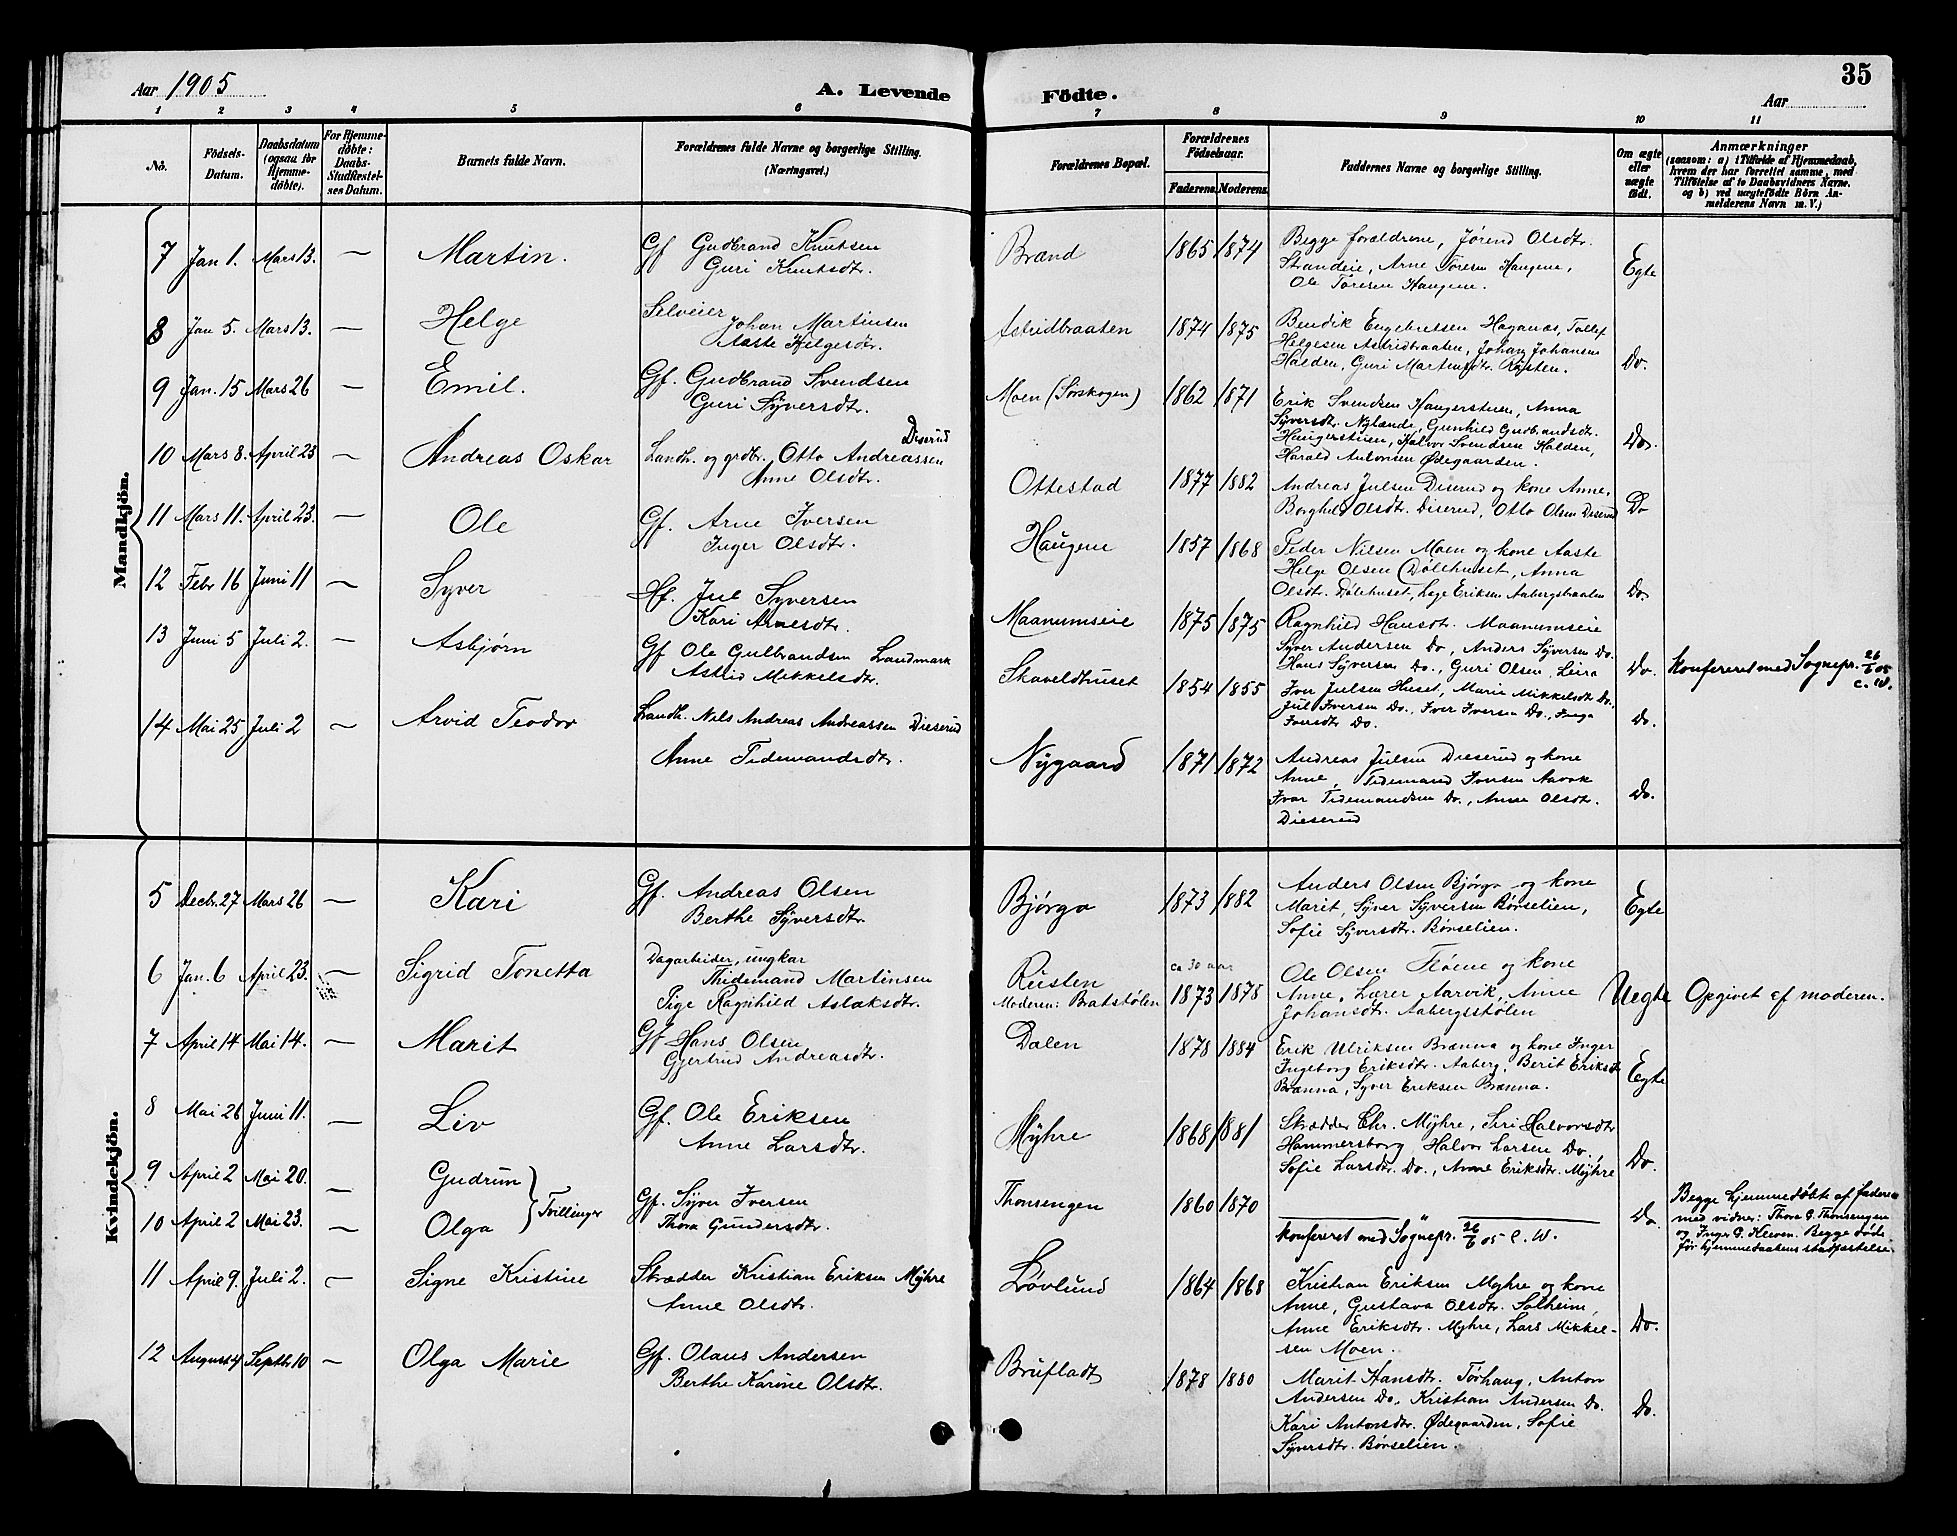 Aar 1905
A. Levende Födte.
35
Aar
1 2 3 4 5 6 7 8 9 10 11
No.
Födsels-Datum.
Daabsdatum (ogsaa for Hjemmedöbte).
For Hjemmedöbte: Daabs-Stadfæstelses Datum.
Barnets fulde Navn.
Forældrenes fulde Navne og borgerlige Stilling. (Næringsvei.)
Forældrenes Bopæl.
Forældrenes Födselsaar.
Faderens. Moderens.
Faddernes Navne og borgerlige Stilling.
Om ægte eller uægte födt.
Anmærkninger
(saasom: a) i Tilfælde af Hjemmedaab,
hvem der har forrettet samme, med
Tilföielse af to Daabsvidners Navne.
og b) ved uægtefödte Börn An-
melderens Navn m. V.)
Mandkjön.
7 Jan 1. Mars 13. — Martin. Gf Gudbrand Knutsen
Guri Knutsdtr.
Brænd 1865 1874
Begge forældrene, Jørend Olsdtr.
Strandeie, Arne Toresen Haugene,
Ole Toresen Haugene.
Egte
8 Jan 5. Mars 13. — Helge Selveier
Johan Martinsen
Aaste Helgesdtr.
Astridbraaten 1874 1875
Bendik Engebretsen Haganæs, Tollef
Helgesen Astridbraaten, Johan Johansen
Halden, Guri Martinsdtr. Røsten.
Do.
9 Jan. 15 Mars 26 — Emil. Gf. Gudbrand Svendsen
Guri Syversdtr.
Moen (Sørskogen) 1862 1871
Erik Svendsen Haugerstuen, Anna
Syversdtr. Nylænde, Gunhild Gudbrandsdtr.
Haugerstuen, Halvor Svendsen Halden,
Harald Antonsen Ødegaarden.
Do.
10 Mars 8. April 23 — Andreas Oskar Landh. og grdbr. Otto Andreassen Diserud
Anne Olsdtr.
Ottestad 1877 1882
Andreas Julsen Diserud og kone Anne,
Borghild Olsdtr. Diserud, Otto Olsen Diserud
Do
11 Mars 11. April 23. — Ole Gf. Arne Iversen
Inger Olsdtr.
Haugene 1857 1868
Peder Nilsen Moen og kone Aaste
Helge Olsen Dølehuset, Anna
Olsdtr. Dølehuset, Lage Eriksen Aabergsbraaten
Do.
12 Febr 16 Juni 11 — Syver Hf. Jul Syversen
Kari Arnesdtr.
Maanumseie 1875 1875
Ragnhild Hansdtr. Maanumseie
Syver Andersen Do, Anders Syversen Do.
Hans Syversen Do., Guri Olsen, Leira
Do.
13 Juni 5 Juli 2. — Asbjørn Gf Ole Gulbrandsen Landmark
Astrid Mikkelsdtr.
Skaveldhuset 1854 1855
Iver Julsen Huset, Marie Mikkelsdtr Do,
Jul Iversen Do., Iver Iversen Do., Inga
Iversdtr Do.
Do.
konfereret med Sognepr. 26/6 05
C. W.
14 Mai 25 Juli 2 — Arvid Teodor Landh. Nils Andreas Andreassen Dieserud
Anne Tidemandsdtr.
Nygaard 1871 1872
Andreas Julsen Dieserud og kone
Anne, Tidemand Iversen Aavok
Ivar Tidemandsen Do., Anne Olsdtr.
Dieserud
Do.
Kvindekjön.
5 Decbr. 27 Mars 26 — Kari Gf. Andreas Olsen
Berthe Syversdtr.
Bjørgo 1873 1882
Anders Olsen Bjørgo og kone
Marit, Syver Syversen Børselien,
Sofie Syversdtr. Børselien.
Egte
6 Jan. 6 April 23. — Sigrid Tonetta Dagarbeider, ungkar
Thidemand Martinsen
Pige Ragnhild Aslaksdtr.
Rusten
Moderen: Batstølen
ca 30 aar
1873 1878
Ole Olsen Fløene og kone
Anne, Lærer Aarvik, Anne
Johansdtr. Aabergsstølen
Uegte Opgivet af moderen.
7 April 14 Mai 14. — Marit Gf Hans Olsen
Gjertrud Andreasdtr.
Dalen 1878 1884
Erik Ulriksen Brænna og kone Inger
Ingeborg Eriksdtr. Aaberg, Berit Eriksdtr
Brænna, Syver Eriksen Brænna.
Egte
8 Mai 26 Juni 11. — Liv Gf. Ole Eriksen
Anne Larsdtr.
Myhre 1868 1881
Skrædder Chr. Myhre, Siri Halvorsdtr
Hammersborg, Halvor Larsen Do,
Sofie Larsdtr. Do., Anne Eriksdtr. Myhre
Do.
9 April 2 Mai 20. — Gudrun
10 April 2 Mai 23. — Olga
Tvillinger
Gf. Syver Iversen
Thora Gundersdtr.
Thonsengen 1860 1870
konfereret med Sognepr. 26/6 05 C. W.
Do.
Begge hjemmedøbte af faderen
med vidner: Thora G. Thonsengen
og Inger G. Kleven. Begge døde
før hjemmedaabens stadfæstelse
11 April 9. Juli 2. — Signe Kristine Skrædder Kristian Eriksen Myhre
Anne Olsdtr.
Løvlund 1864 1868
Kristian Eriksen Myhre og kone
Anne, Gustava Olsdtr. Solheim,
Anne Eriksdtr. Myhre, Lars Mikkel-
sen Moen.
Do.
12 August 4 Septbr. 10 — Olga Marie Gf. Olaus Andersen
Berthe Karine Olsdtr.
Brufladt 1878 1880
Marit Hansdtr. Tørhaug, Anton
Andersen Do, Kristian Andersen Do.
Kari Antonsdtr. Ødegaarden, Sofie
Syversdtr. Børselien.
Do.